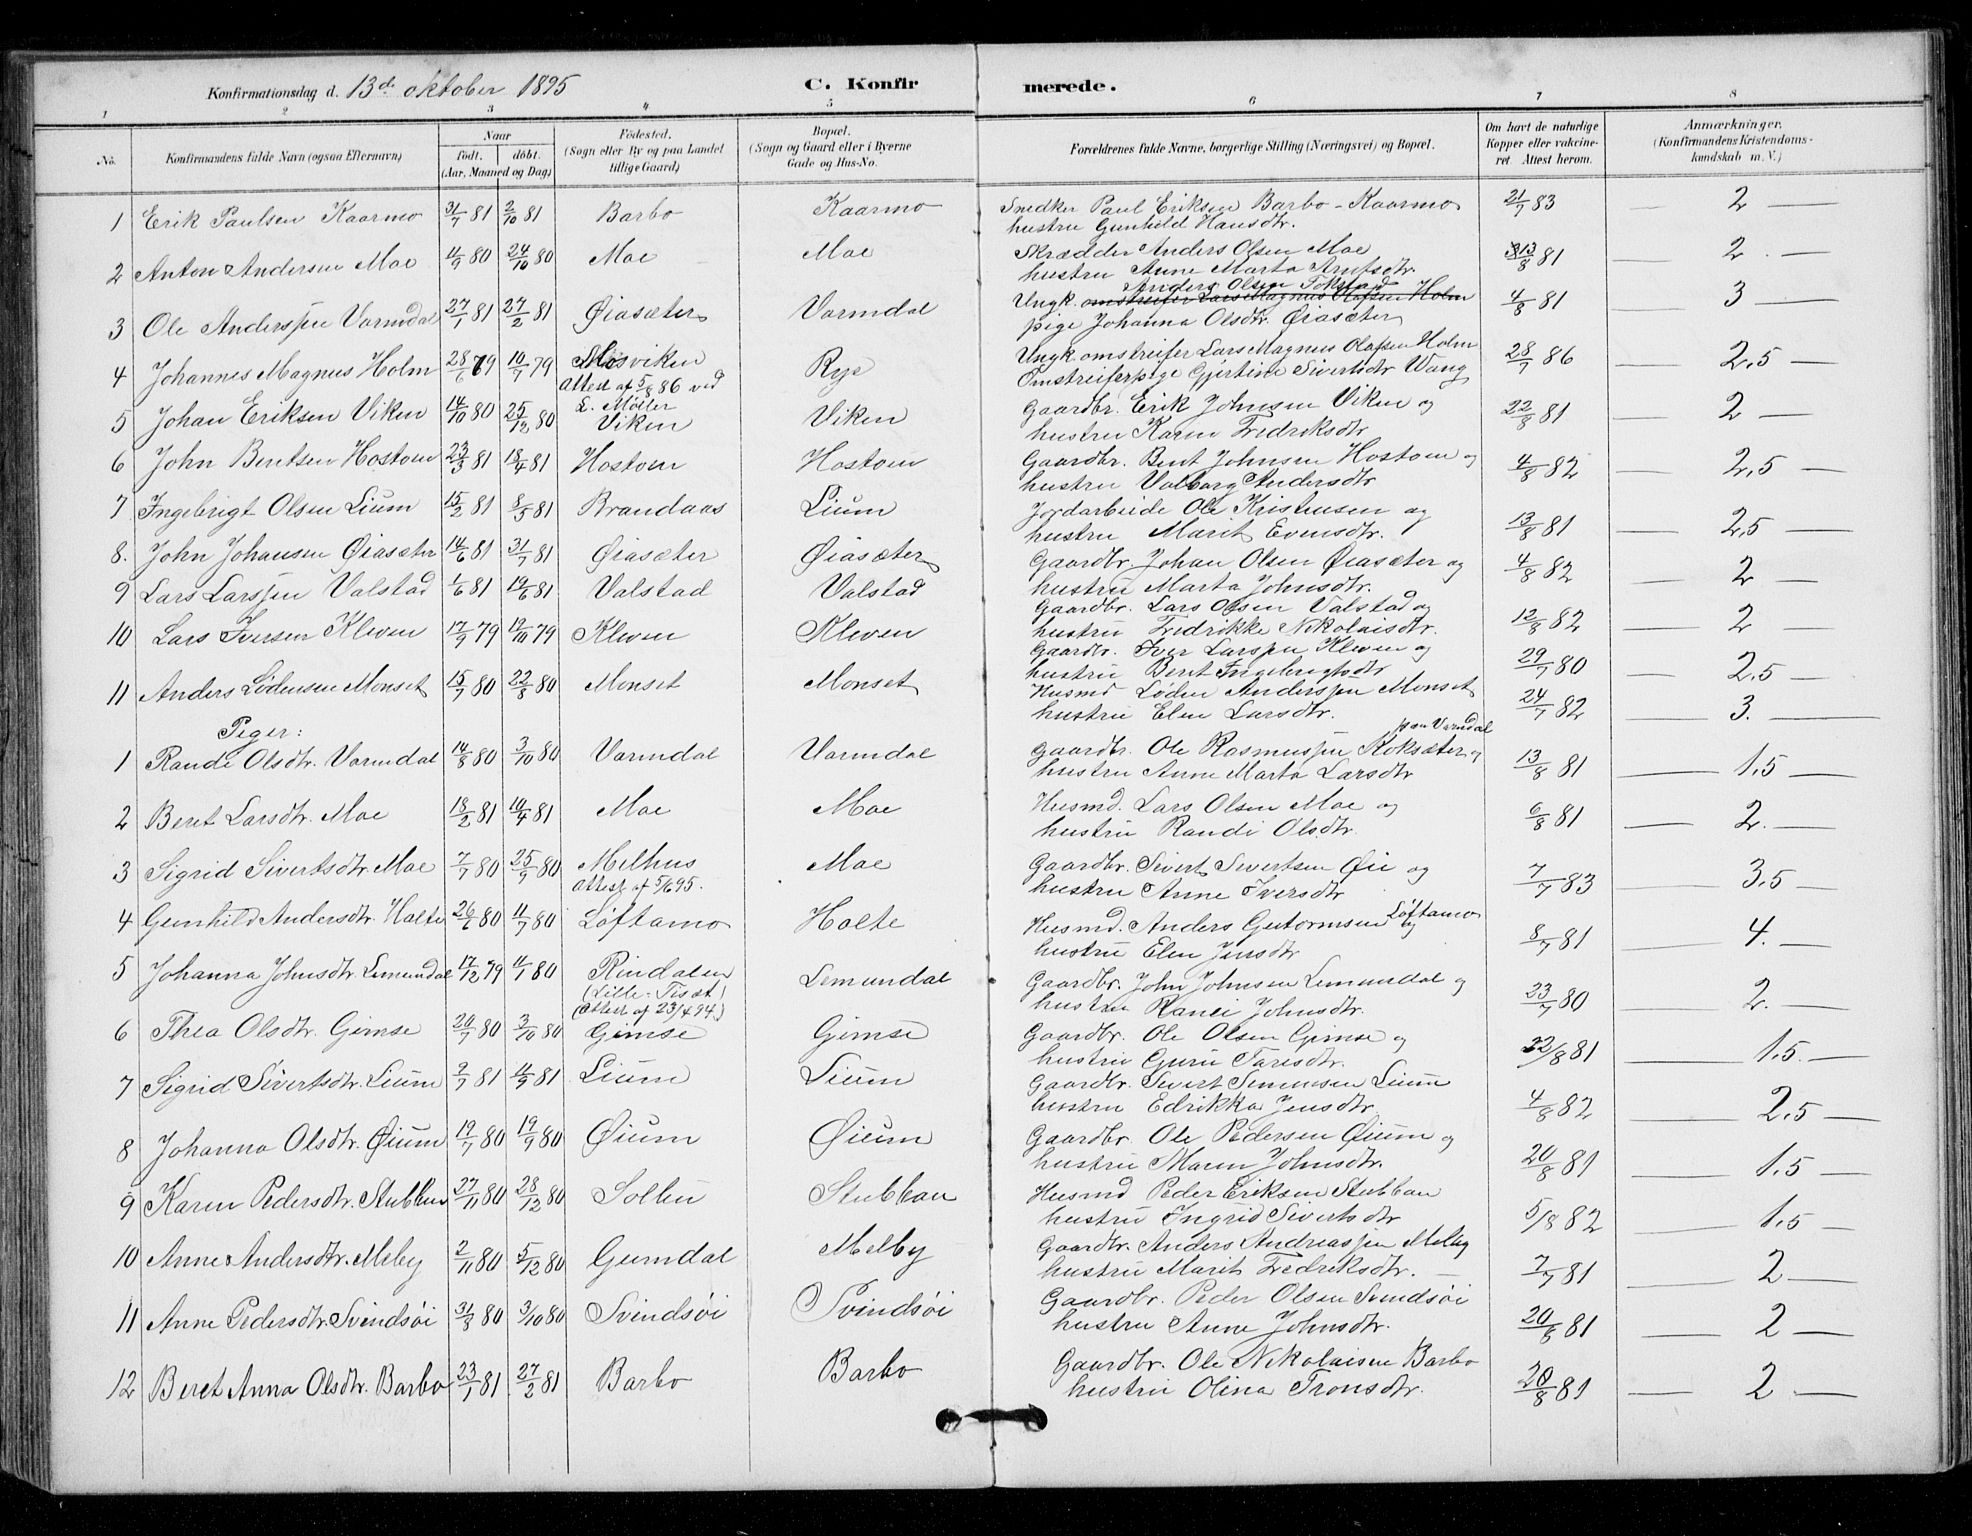 Konfirmationsdag d. 13de oktober 1895 C. Konfir merede.
1 2 3 4 5 6 7 8
No. Konfirmandens fulde Navn (ogsaa Efternavn) Naar födt. döbt. (Aar, Maaned og Dag) Födested. (Sogn eller By og paa Landet tillige Gaard) Bopæl. (Sogn og Gaard eller i Byerne Gade og Hus-No. Forældrenes fulde Navne, borgerlige Stilling (Næringsvei) og Bopæl. Om havt de naturlige Kopper eller vakcineret. Attest herom. Anmærkninger. (Konfirmandens Kristendomskundskab m. V.)
1 Erik Paulsen Kaarmo 31/7 81 2/10 81 Barbo Kaarmo Snedker Paul Eriksen Barbo - Kaarmo 21/7 83 — 2 —
hustru Gunhild Hansdtr.
2 Anton Andersen Moe 11/9 80 24/10 80 Moe Moe Skrædder Anders Olsen Moe 13/8 81 — 2. —
hustru Anne Marta Arntsdtr.
Anders Olsen Fokstad
3 Ole Anderssen Varmdal 27/1 81 27/2 81 Øiasæter Varmdal Ungk. omstreifer Lars Magnus Olafsen Holm 4/8 81 — 3 —
pige Johanna Olsdtr. Øiasæter
4 Johannes Magnus Holm 28/6 79 10/7 79 Mosviken Rye Ungk. omstreifer Lars Magnus Olafsen Holm 28/7 86 — 2,5 —
Attest af 5/8 86 ved Omstreiferpige Gjertine Sivertsdtr Wang
L. Møller
5 Johan Eriksen Viken 14/10 80 25/12 80 Viken Viken Gaardbr. Erik Johnsen Viken og 22/8 81 — 2 —
hustru Karen Fredriksdtr
6 John Bentsen Hostom 23/3 81 18/4 81 Hostom Hostom Gaardbr. Bent Johnsen Hostom og 4/8 82 — 2,5 —
hustru Valborg Andersdtr
7 Ingebrigt Olsen Lium 15/2 81 8/5 81 Brandaas Lium Jordarbeide Ole Kristensen og 13/8 81 — 2,5 —
hustru Marit Evensdtr.
8. John Johansen Øiasæter 14/6 81 31/7 81 Øiasæter Øiasæter Gaardbr. Johan Olsen Øiasæter og 4/8 82 — 2 —
hustru Marta Johnsdtr.
9 Lars Larssen Valstad 1/6 81 19/6 81 Valstad Valstad Gaardbr. Lars Olsen Valstad og 12/8 82 — 2 —
hustru Fredrikke Nikolaisdtr.
10 Lars Iversen Kleven 17/9 79 19/10 79 Kleven Kleven Gaardbr. Iver Larssen Kleven og 29/7 80 — 2,5 —
hustru Beret Ingebrigtsdtr
11 Anders Lødensen Monset 15/7 80 22/8 80 Monset Monset Husmd Løden Anderssen Monset 24/7 82 — 3. —
hustru Elen Larsdtr.
Piger:
paa Varmdal
1 Randi Olsdtr. Varmdal 14/8 80 3/10 80 Varmdal Varmdal Gaardbr. Ole Rasmussen Koksæter og 13/8 81 — 1,5 —
hustru Anne Marta Larsdtr
2 Beret Larsdtr. Moe 18/2 81 10/4 81 Moe Moe Husmd. Lars Olsen Moe og 6/8 81 — 2. —
hustru Randi Olsdtr.
3 Sigrid Sivertsdtr. Moe 7/7 80 25/9 80 Melhus Moe Gaardbr. Sivert Sivertsen Øie og 7/7 83 — 3,5 —
Attest af 5/6 95. hustru Anne Iversdtr
4 Gunhild Andersdtr. Holte 26/6 80 11/7 80 Løftamo Holte Husmd. Anders Gutormsen Løftamo og 8/7 81 — 4. —
hustru Elen Jensdtr
5 Johanna Johnsdtr. Lemundal 17/12 79 11/1 80 Rindalen Lemundal Gaardbr. John Johnsen Lemundal og 23/7 80 — 2. —
(Lille-Tiset) hustru Ranei Johnsdtr.
(Attest af 23/4 94.)
6 Thea Olsdtr. Gimse 20/7 80 3/10 80 Gimse Gimse Gaardbr. Ole Olsen Gimse og 22/8 81 — 1,5. —
hustru Guru Taresdtr.
7 Sigrid Sivertsdtr. Lium 9/7 81 11/9 81 Lium Lium Gaardbr. Sivert Simensen Lium 4/8 82 — 2,5 —
hustru Edrikka Jensdtr
8 Johanna Olsdtr. Øium 19/7 80 19/9 80 Øium Øium Gaardbr. Ole Pedersen Øium og 20/8 81 — 1,5 —
hustru Maren Johnsdtr.
9 Karen Pedersdtr. Stubban 27/11 80 28/12 80 Solbu Stubban Husmd Peder Eriksen Stubban 5/8 82 — 1,5 —
hustru Ingrid Sivertsdtr
10 Anne Andersdtr. Melby 2/11 80 5/12 80 Gumdal Melby Gaardbr. Anders Andreassen Melby 7/7 81 — 2 —
hustru Marit Fredriksdtr. —
11 Anne Pedersdtr. Svindsøi 31/8 80 3/10 80 Svindsøi Svindsøi Gaardbr. Peder Olsen Svindsøi 20/8 81 — 2 —
hustru Anne Johnsdtr.
12 Beret Anna Olsdtr. Barbo 23/1 81 27/2 81 Barbo Barbo Gaardbr. Ole Nikolaisen Barbo 20/8 81 — 2 —
hustru Olina Tronsdtr.